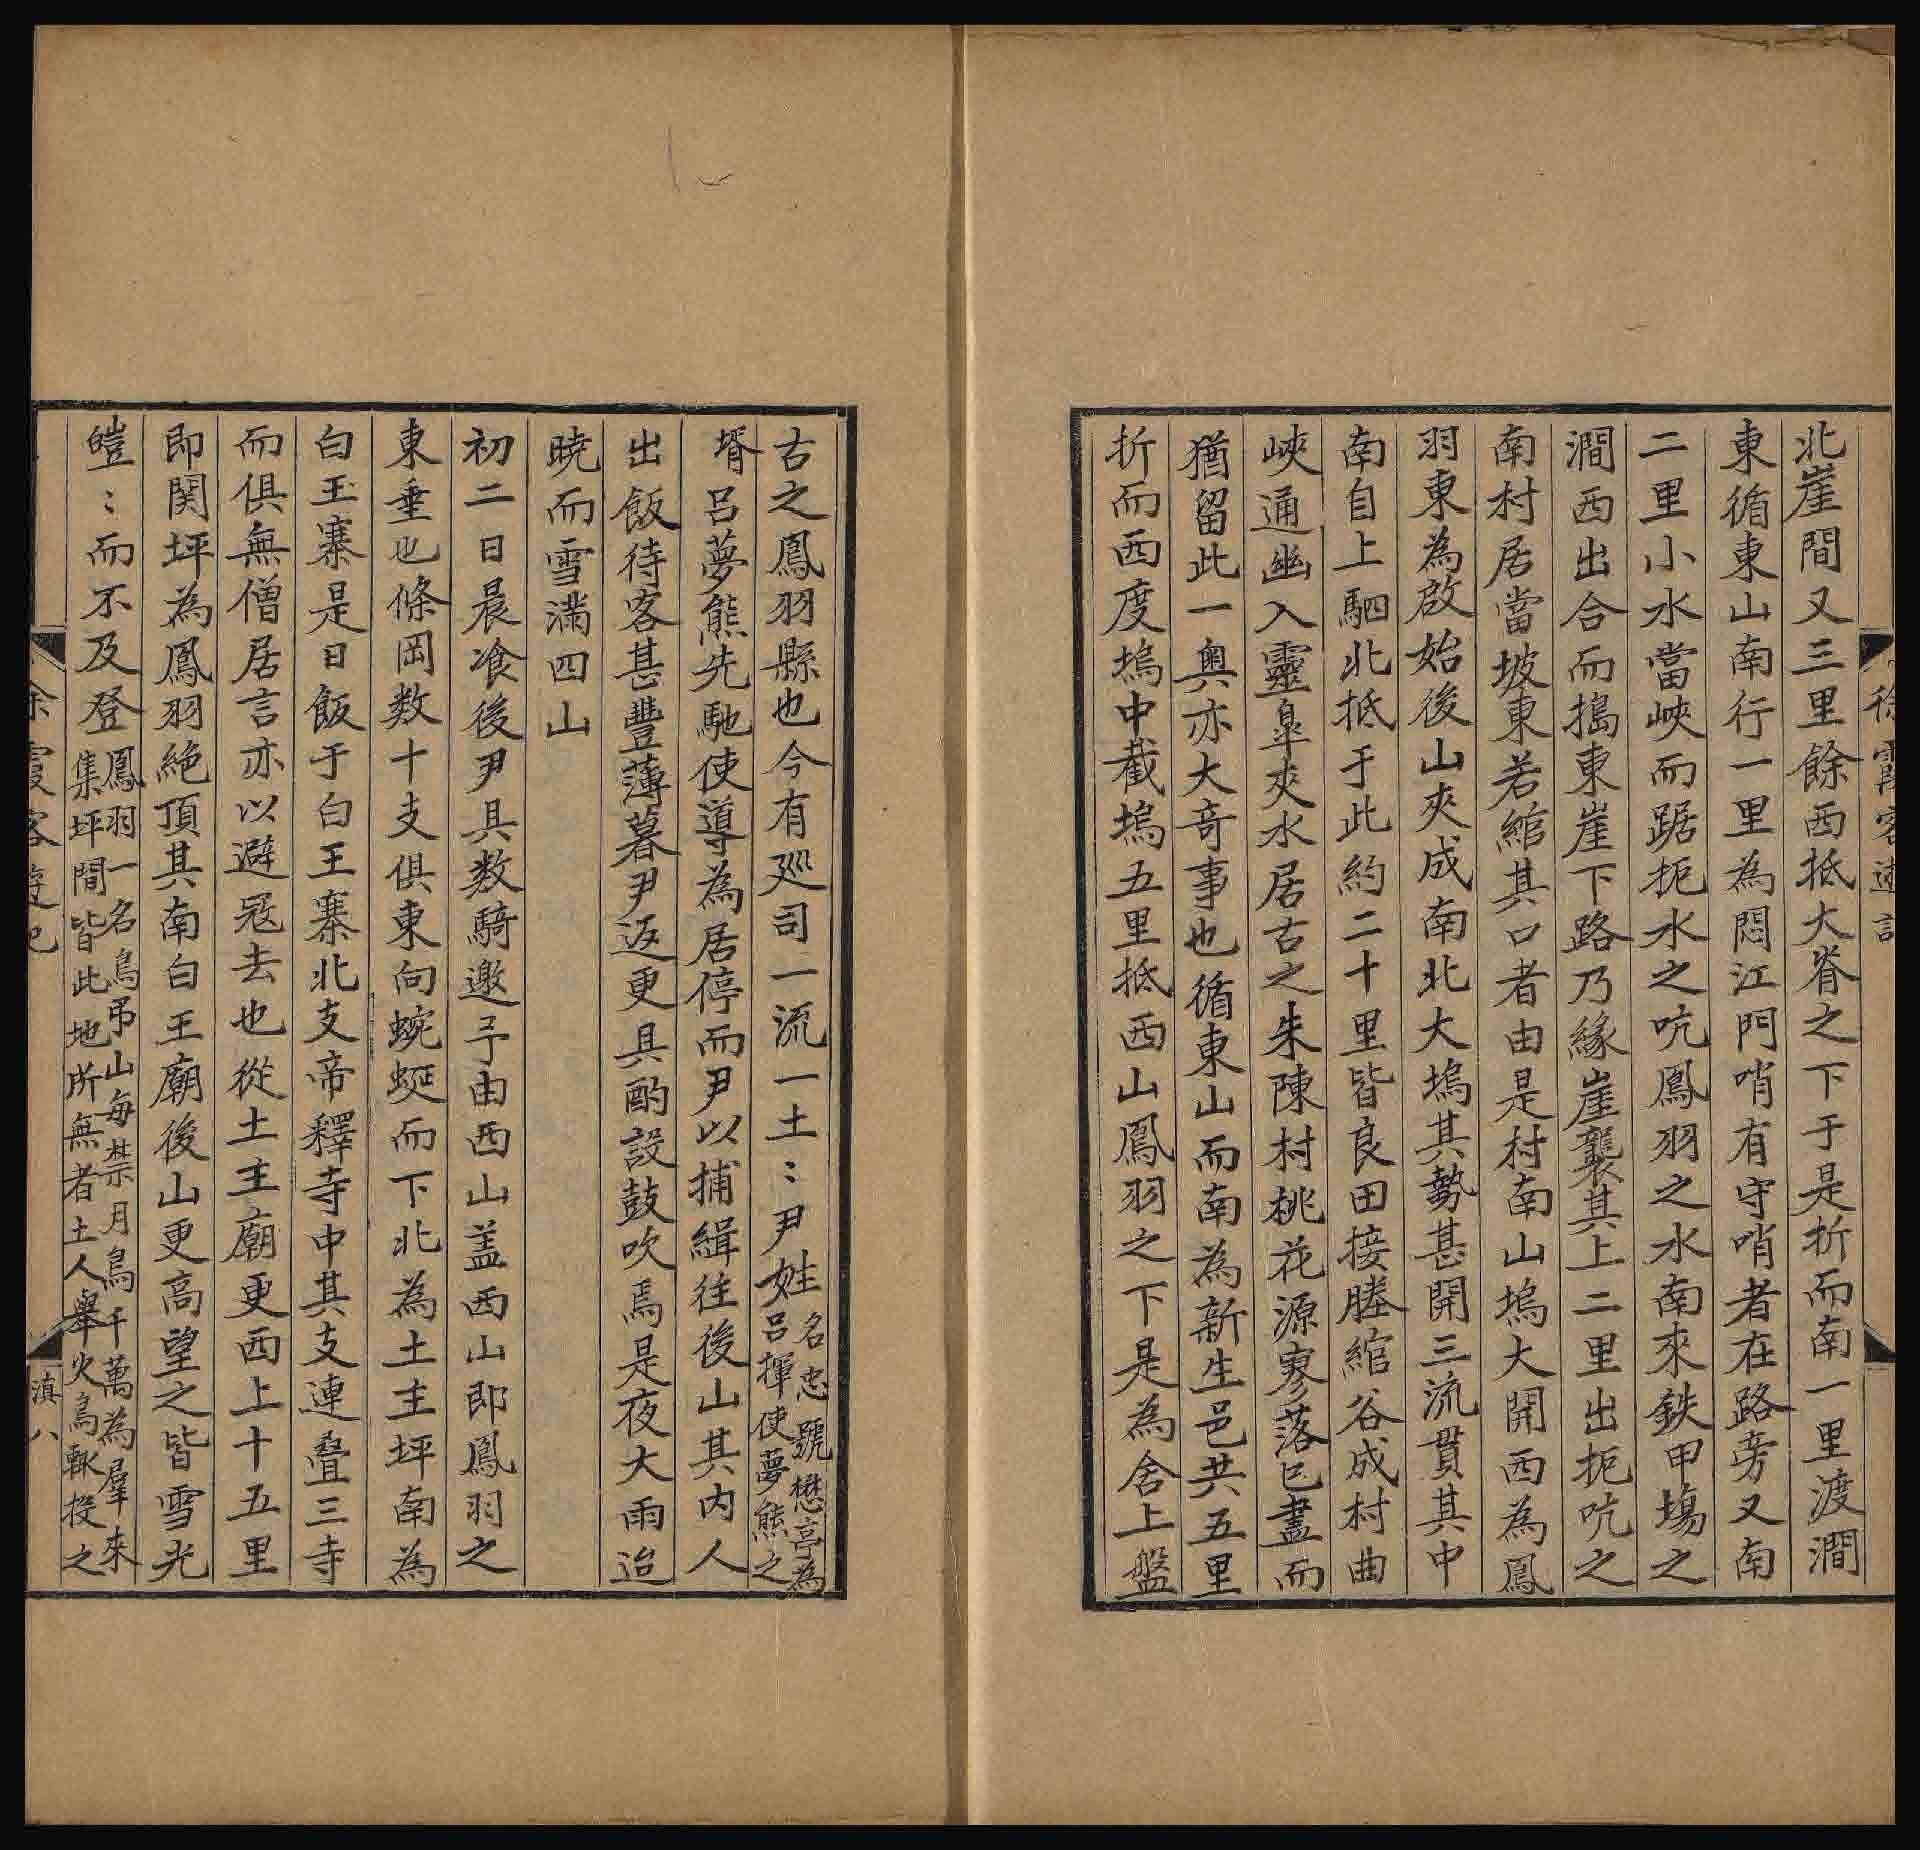 徐霞客遊記
北崖間又三里餘西抵大脊之下于是折而南一里渡澗
東循東山南行一里為悶江門哨有守哨者在路旁又南
二里小水當峽而踞扼水之吭鳳羽之水南來鉄甲塲之
澗西出合而搗東崖下路乃緣崖襲其上二里出扼吭之
南村居當坡東若綰其口者由是村南山塢大開西為鳳
羽東為啟始後山夾成南北大塢其勢甚開三流貫其中
南自上駟北抵于此約二十里皆良田接塍綰谷成村曲
峽通幽入靈臯夾水居古之朱陳村桃花源寥落已盡而
猶留此一奧亦大竒事也循東山而南為新生邑共五里
折而西度塢中截塢五里抵西山鳳羽之下是為舍上盤
古之鳳羽縣也今有廵司一流一土〻尹姓名忠號懋亭為
呂揮使夢熊之
壻呂夢熊先馳使導為居停而尹以捕緝往後山其内人
出飯待客甚豐薄暮尹返更具酌設鼓吹焉是夜大雨迨
曉而雪滿四山
初二日晨飡後尹具数騎邀予由西山盖西山即鳳羽之
東垂也條岡数十支俱東向蜿蜒而下北為土主坪南為
白王寨是日飯于白王寨北支帝釋寺中其支連疊三寺
而俱無僧居言亦以避冦去也從土主廟更西上十五里
即関坪為鳳羽絶頂其南白王廟後山更高望之皆雪光
皚〻而不及登鳳羽一名鳥吊山每禁月鳥千萬為羣來
集坪間皆此地所無者土人舉火鳥輒投之
徐霞客遊記
滇八